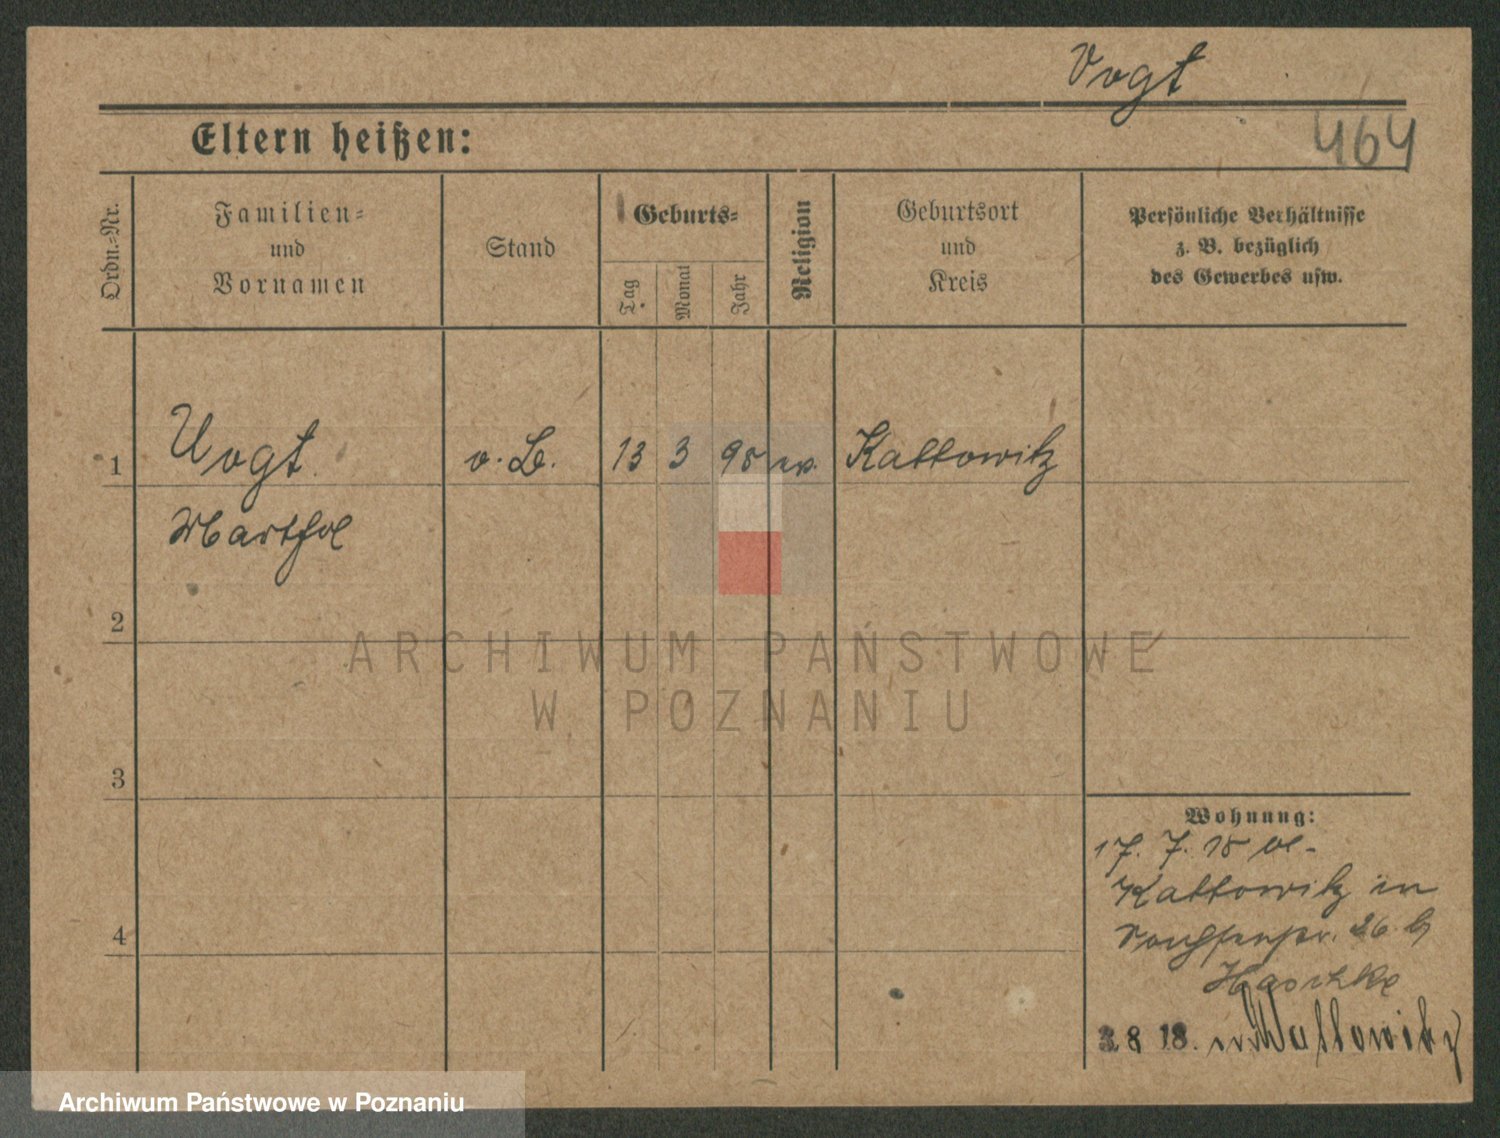 Vogt
Eltern heißen:
464
Ordn.=Nr.
Familien=
und
Vornamen
Stand
Geburts=
Tag
Monat
Jahr
Religion
Geburtsort
und
Kreis
Persönliche Verhältnisse
z. B. bezüglich
des Gewerbes usw.
1
Vogt
o. B.
13
3
98
ev.
Kattowitz
Martha
2
3
4
Wohnung:
17. 7. 18
Kattowitz in
26. b/
Haschke
3. 8 18. Kattowitz
ARCHIWUM PAŃSTWOWE
W POZNANIU
Archiwum Państwowe w Poznaniu